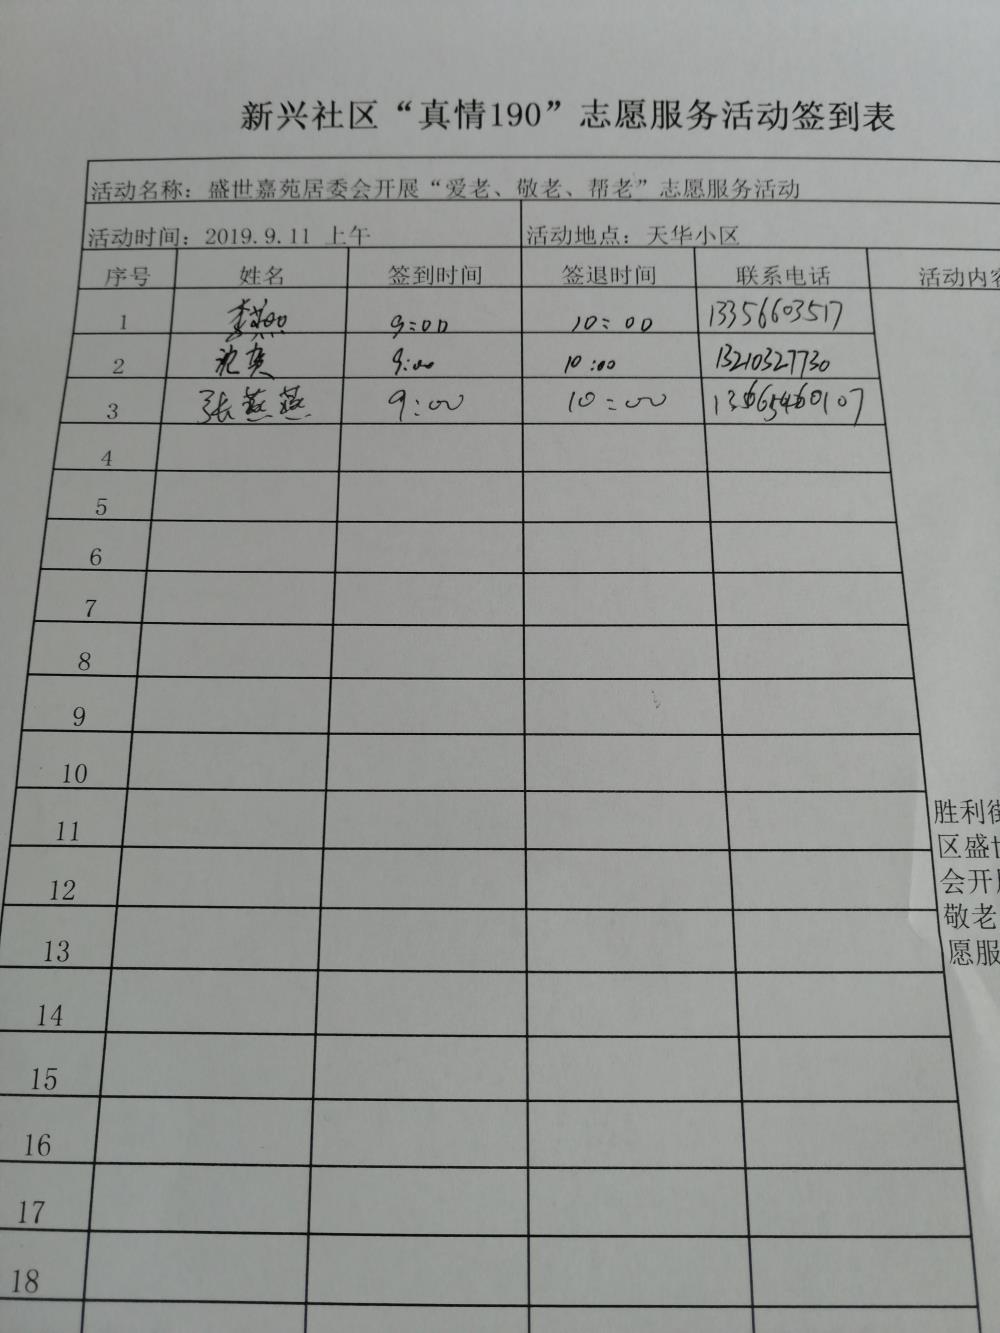 新兴社区“真情190”志愿服务活动签到表
活动名称：盛世嘉苑居委会开展“爱老、敬老、帮老”志愿服务活动
活动时间：2019.9.11 上午 活动地点：天华小区
序号 姓名 签到时间 签退时间 联系电话 活动内容
1 9:00 10:00 13356603517
2 9:00 10:00 13210327730
3 张燕燕 9:00 10:00
4
5
6
7
8
9
10
11
12
13
14
15
16
17
18
胜利街
区盛世
会开展
敬老
愿服